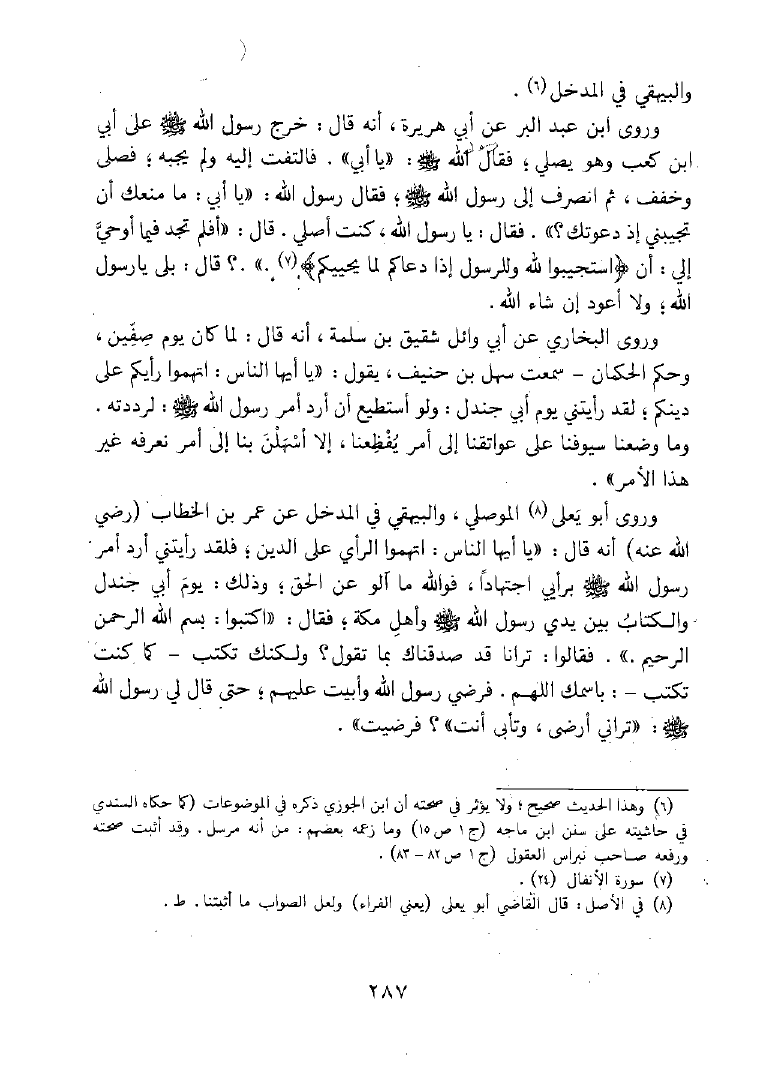 والبيهقي في المدخل (٦) .
وروى ابن عبد البر عن أبي هريرة ، أنه قال : خرج رسول الله ﷺ على أبي
ابن كعب وهو يصلي ؛ فقال الله ﷺ : «يا أبي» . فالتفت إليه ولم يجبه ؛ فصلى
وخفف ، ثم انصرف إلى رسول الله ﷺ ؛ فقال رسول الله : «يا أبي : ما منعك أن
تجيبني إذ دعوتك ؟» . فقال : يا رسول الله ، كنت أصلي . قال : «أفلم تجد فيما أوحيَّ
إلي : أن ﴿استجيبوا لله وللرسول إذا دعاكم لما يحييكم﴾ (٧) .» .؟ قال : بلى يارسول
الله ؛ ولا أعود إن شاء الله .
وروى البخاري عن أبي وائل شقيق بن سلمة ، أنه قال : لما كان يوم صِفِّين ،
وحكم الحكمان – سمعت سهل بن حنيف ، يقول : «يا أيها الناس : اتهموا رأيكم على
دينكم ؛ لقد رأيتني يوم أبي جندل : ولو أستطيع أن أرد أمر رسول الله ﷺ : لرددته .
وما وضعنا سيوفنا على عواتقنا إلى أمر يُفْظِعنا ، إلا أسْهَلْنَ بنا إلى أمر نعرفه غير
هذا الأمر» .
وروى أبو يَعلى (٨) الموصلي ، والبيهقي في المدخل عن عمر بن الخطاب (رضي
الله عنه) أنه قال : «يا أيها الناس : اتهموا الرأي على الدين ؛ فلقد رأيتني أرد أمر
رسول الله ﷺ برأيي اجتهاداً ، فوالله ما آلو عن الحق ؛ وذلك : يومَ أبي جندل
والكتابُ بين يدي رسول الله ﷺ وأهلِ مكة ؛ فقال : «اكتبوا : بسم الله الرحمن
الرحيم .» . فقالوا : ترانا قد صدقناك بما تقول ؟ ولكنك تكتب – كما كنت
تكتب – : باسمك اللهم . فرضي رسول الله وأبيت عليهم ؛ حتى قال لي رسول الله
ﷺ : «تراني أرضى ، وتأبى أنت» ؟ فرضيت» .
(٦) وهذا الحديث صحيح ؛ ولا يؤثر في صحته أن ابن الجوزي ذكره في الموضوعات (كما حكاه السندي
في حاشيته على سنن ابن ماجه (ج ١ ص ١٥) وما زعمه بعضهم : من أنه مرسل . وقد أثبت صحته
ورفعه صاحب نبراس العقول (ج ١ ص ٨٢ – ٨٣) .
(٧) سورة الأنفال (٢٤) .
(٨) في الأصل : قال القاضي أبو يعلى (يعني الفراء) ولعل الصواب ما أثبتنا . ط .
٢٨٧